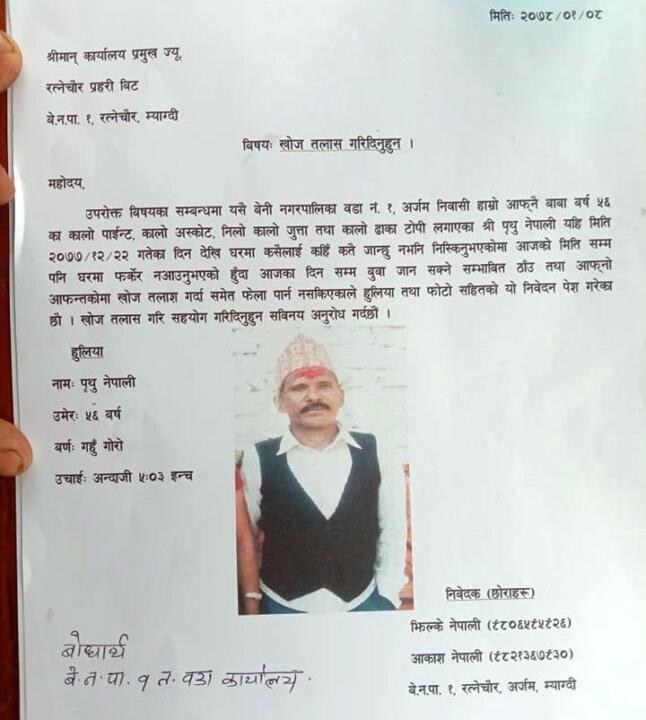 मितिः २०७८/०१/०८
श्रीमान् कार्यालय प्रमुख ज्यू,
रत्नेचौर प्रहरी विट
बे.न.पा. १, रत्नेचौर, म्याग्दी
बिषयः खोज तलास गरिदिनुहुन ।
महोदय,
उपरोक्त बिषयका सम्बन्धमा यसै बेनी नगरपालिका वडा नं. १, अर्जम निवासी हाम्रो आफ्नै बाबा बर्ष ५६
का कालो पाईन्ट, कालो अस्कोट, निलो कालो जुत्ता तथा कालो ढाका टोपी लगाएका श्री पृथु नेपाली यहि मिति
२०७७/१२/२२ गतेका दिन देखि घरमा कसैलाई कहिं कतै जान्छु नभनि निस्किनुभएकोमा आजको मिति सम्म
पनि घरमा फर्केर नआउनुभएको हुँदा आजका दिन सम्म बुवा जान सक्ने सम्भावित ठाँउ तथा आफ्नो
आफन्तकोमा खोज तलाश गर्दा समेत फेला पार्न नसकिएकाले हुलिया तथा फोटो सहितको यो निवेदन पेश गरेका
छौ । खोज तलास गरि सहयोग गरिदिनुहुन सविनय अनुरोध गर्दछौ ।
हुलिया
नामः पृथु नेपाली
उमेरः ५६ बर्ष
बर्णः गहुँ गोरो
उचाईः अन्दाजी ५:०३ इन्च
निवेदक (छोराहरू)
झिल्के नेपाली (९८०६५९५९२६)
आकाश नेपाली (९८२१३६७९३०)
बे.न.पा. १, रत्नेचौर, अर्जम, म्याग्दी
बोधार्थ
बे.न.पा. १ नं. वडा कार्यालय .